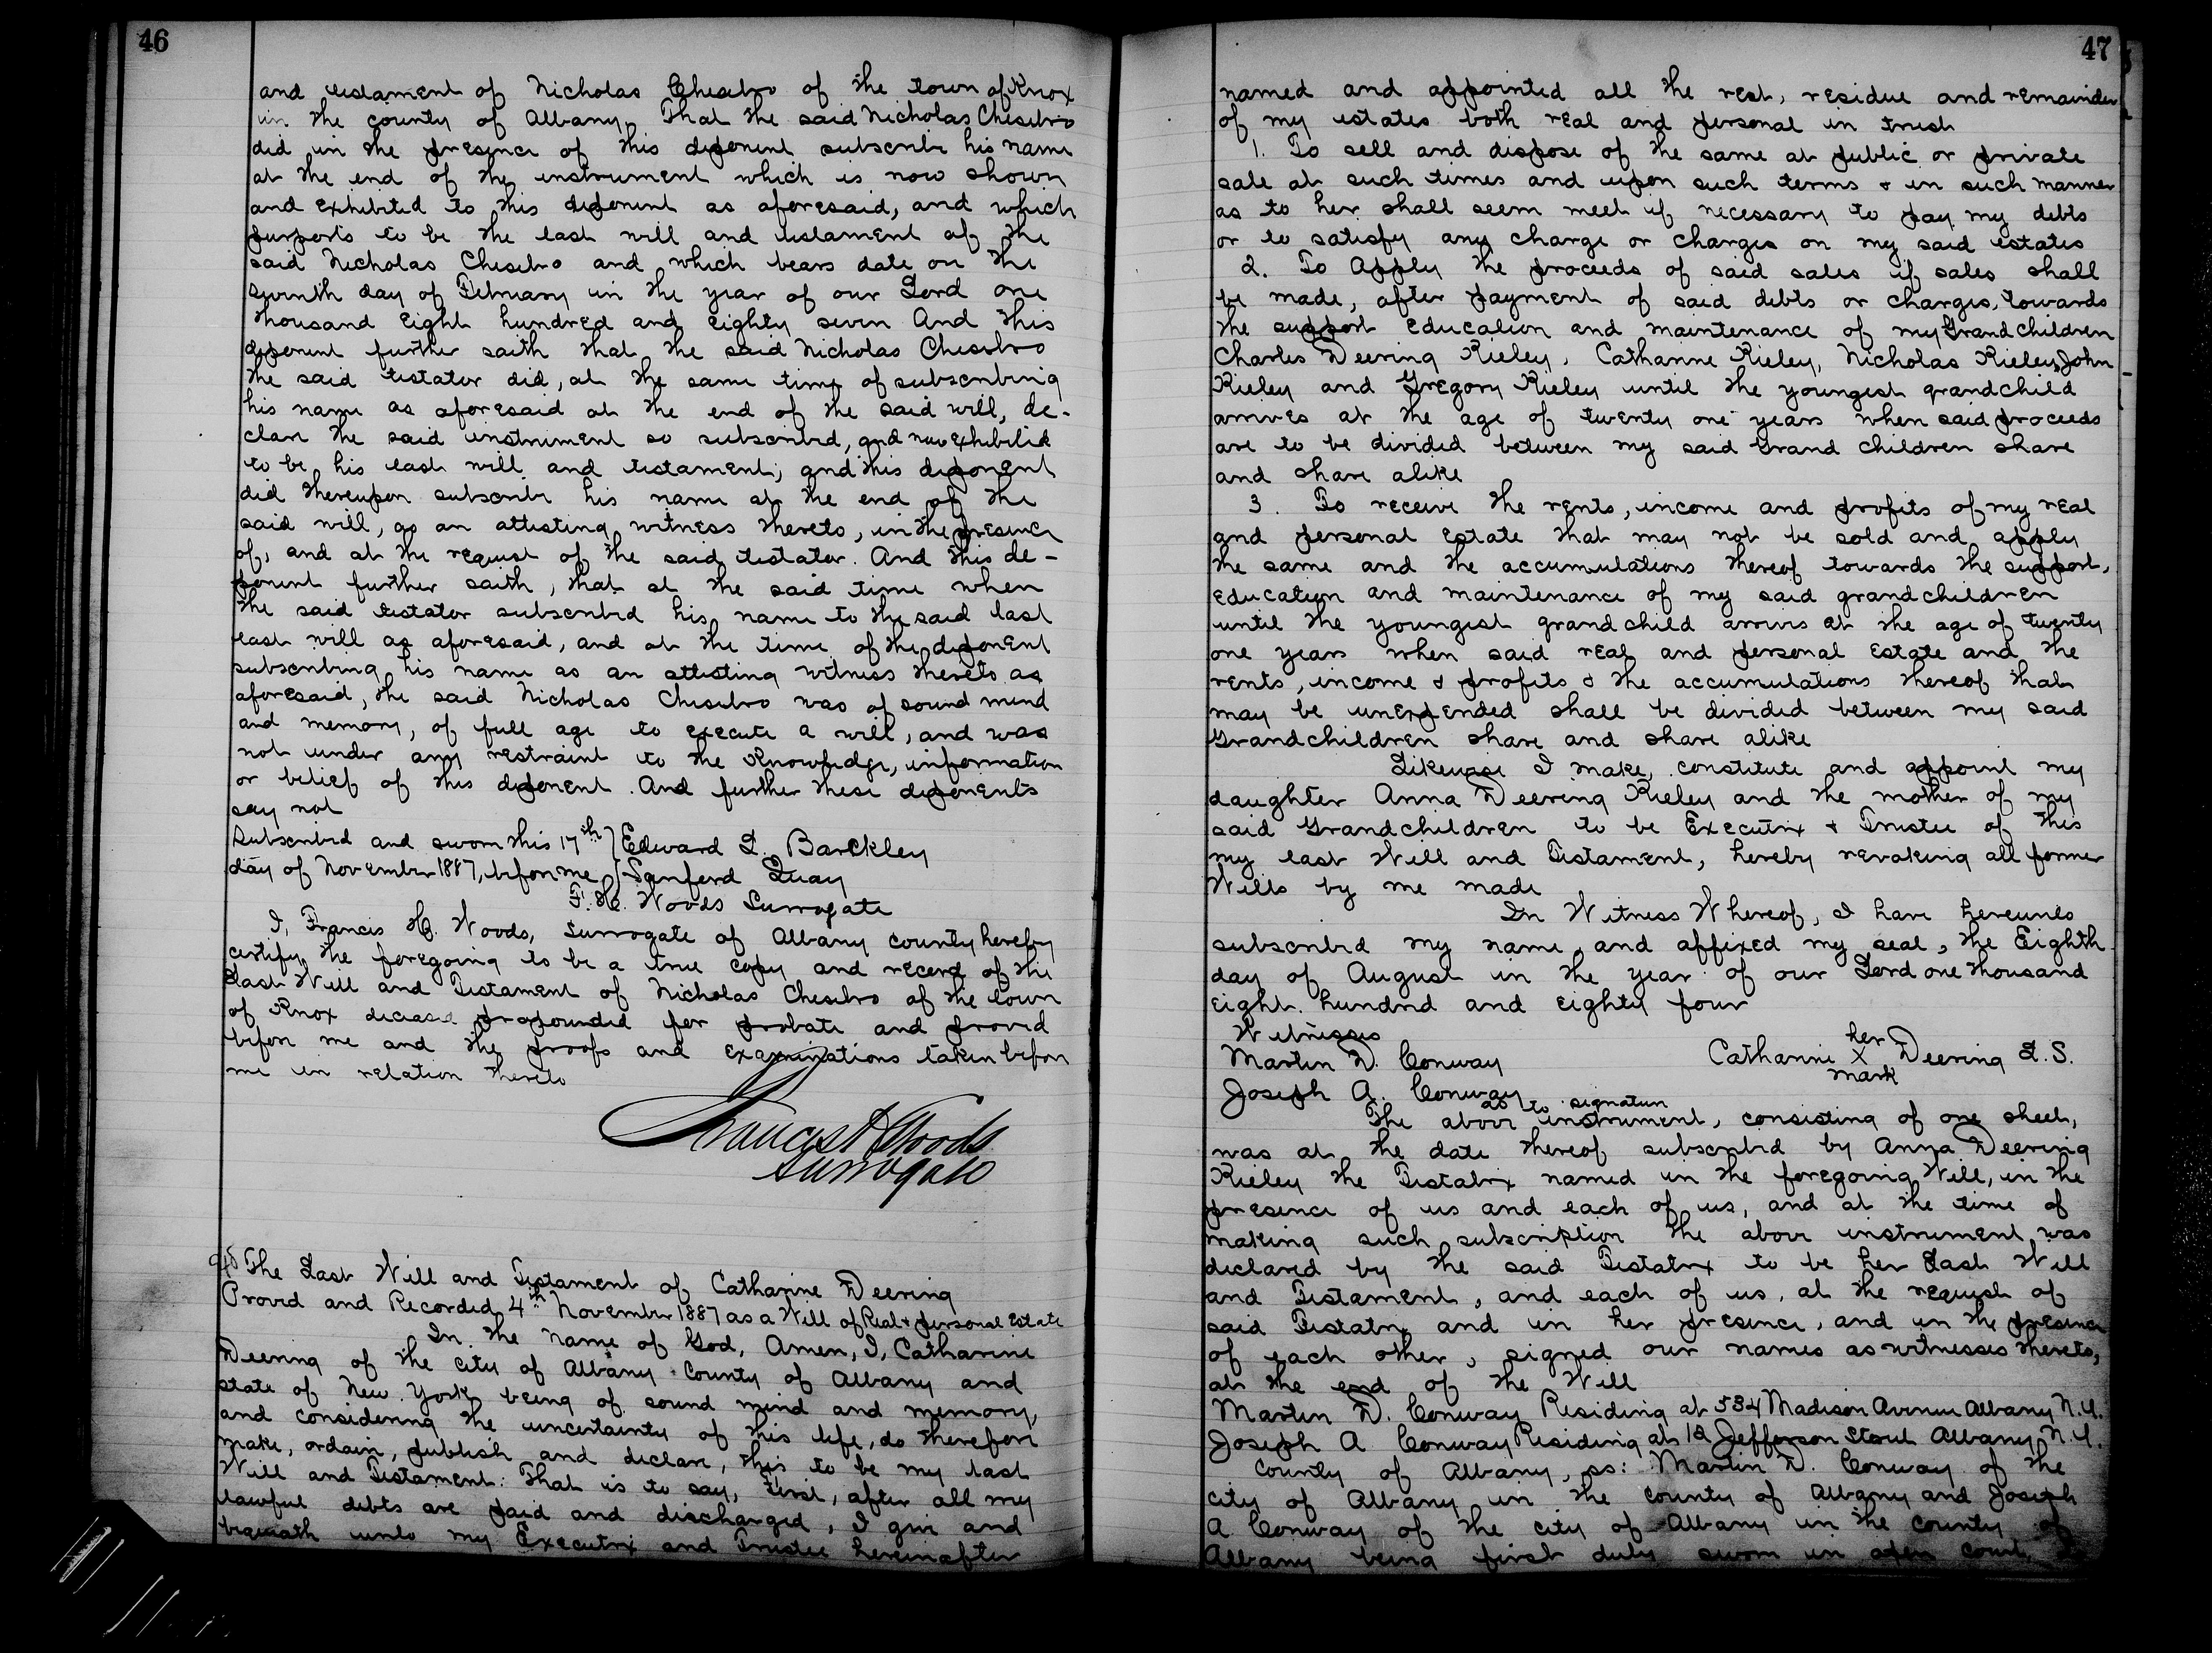 46
and testament of Nicholas Chesebro of the town of Knox
in the county of Albany. That the said Nicholas Chesebro
did in the presence of this deponent subscribe his name
at the end of the instrument which is now shown
and exhibited to this deponent as aforesaid, and which
purports to be the last will and testament of the
said Nicholas Chesebro and which bears date on the
seventh day of February in the year of our Lord one
thousand eight hundred and eighty seven And this
deponent further saith that the said Nicholas Chesebro
the said testator did, at the same time of subscribing
his name as aforesaid at the end of the said will, de-
clare the said instrument so subscribed, and now exhibited
to be his last will and testament; and this deponent
did thereupon subscribe his name at the end of the
said will, as an attesting witness thereto, in the presence
of, and at the request of the said testator. And this de-
ponent further saith, that at the said time when
the said testator subscribed his name to the said last
last will as aforesaid, and at the time of the deponent
subscribing his name as an attesting witness thereto as
aforesaid, the said Nicholas Chesebro was of sound mind
and memory, of full age to execute a will, and was
not under any restraint to the knowledge, information
or belief of this deponent. And further these deponents
say not
Subscribed and sworn this 17th } Edward L. Barckley
day of November 1887, before me } Sanford Quay
F. H. Woods Surrogate
I, Francis H. Woods, Surrogate of Albany county hereby
certify the foregoing to be a true copy and record of the
Last Will and Testament of Nicholas Chesebro of the town
of Knox deceased propounded for probate and proved
before me and the proofs and examinations taken before
me in relation thereto
Francis H Woods
Surrogate
The Last Will and Testament of Catharine Deering
Proved and Recorded 4th November 1887 as a Will of Real & personal Estate
In the name of God, Amen, I, Catharine
Deering of the city of Albany County of Albany and
state of New York being of sound mind and memory,
and considering the uncertainty of this life, do therefore
make, ordain, publish and declare, this to be my last
Will and Testament: That is to say, First, after all my
lawful debts are paid and discharged, I give and
bequeath unto my Executrix and Trustee hereinafter
47
named and appointed all the rest, residue and remainder
of my estates both real and personal in trust
1. To sell and dispose of the same at public or private
sale at such times and upon such terms & in such manner
as to her shall seem meet if necessary to pay my debts
or to satisfy any charge or charges on my said estates
2. To Apply the proceeds of said sales if sales shall
be made, after payment of said debts or charges, towards
the support education and maintenance of my Grandchildren
Charles Deering Rieley, Catharine Rieley, Nicholas Rieley, John
Rieley and Gregory Rieley until the youngest grandchild
arrives at the age of twenty one years when said proceeds
are to be divided between my said Grand children share
and share alike
3. To receive the rents, income and profits of my real
and personal Estate that may not be sold and apply
the same and the accumulations thereof towards the support,
education and maintenance of my said grandchildren
until the youngest grandchild arrives at the age of twenty
one years when said real and personal Estate and the
rents, income & profits & the accumulations thereof that
may be unexpended shall be divided between my said
Grandchildren share and share alike
Likewise I make, constitute and appoint my
daughter Anna Deering Rieley and the mother of my
said Grandchildren to be Executrix & Trustee of this
my last Will and Testament, hereby revoking all former
Wills by me made
In Witness Whereof, I have hereunto
subscribed my name and affixed my seal, the Eighth
day of August in the year of our Lord one thousand
eight hundred and eighty four
Witnesses
her
Martin D. Conway Catharine X Deering L.S.
mark
Joseph A. Conway
as to signature
The above instrument, consisting of one sheet,
was at the date thereof subscribed by Anna Deering
Rieley the Testatrix named in the foregoing Will, in the
presence of us and each of us, and at the time of
making such subscription the above instrument was
declared by the said Testatrix to be her Last Will
and Testament, and each of us, at the request of
said Testatrix and in her presence, and in the presence
of each other, signed our names as witnesses thereto,
at the end of the Will
Martin D. Conway Residing at 534 Madison Avenue Albany N.Y.
Joseph A Conway Residing at 12 Jefferson Street Albany N.Y.
County of Albany, ss: Martin D. Conway of the
city of Albany in the county of Albany and Joseph
A Conway of the city of Albany in the county of
Albany being first duly sworn in open court,